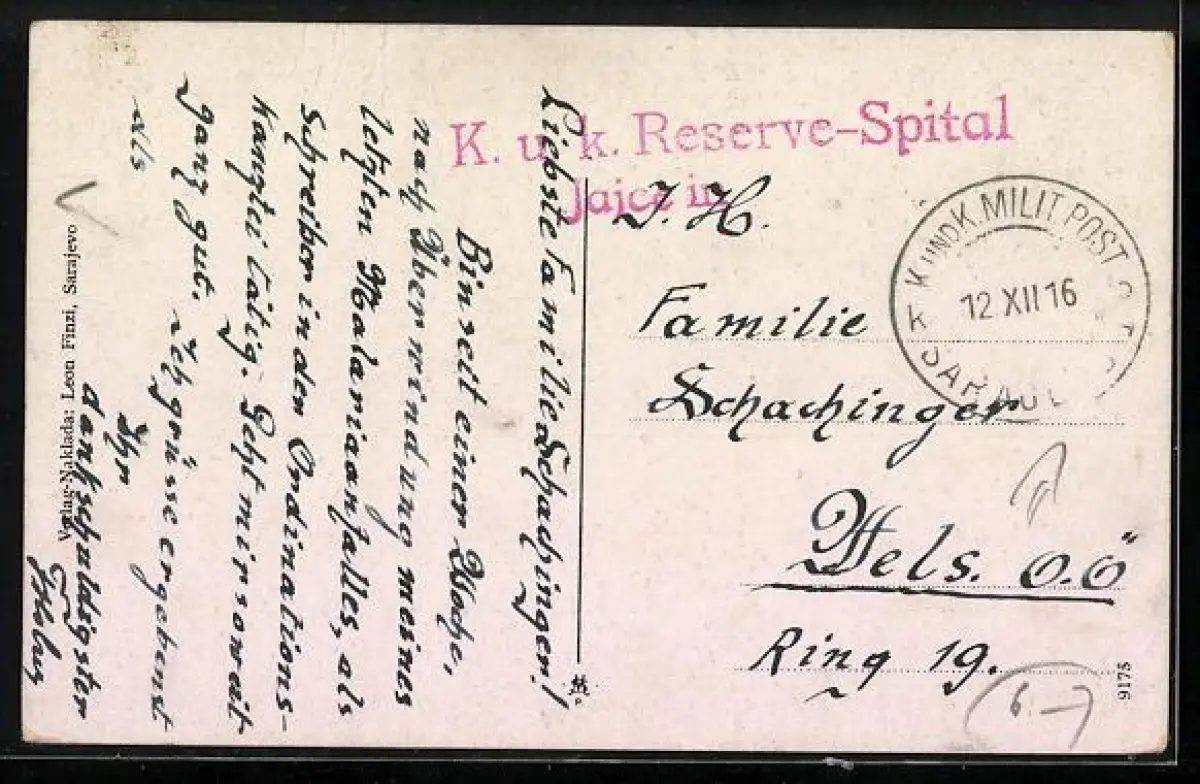 K. u. k. Reserve-Spital
Jajce in
K. UND K. MILIT. POST
12 XII 16
SARAJE
J. H.
Familie
Schachinger
Wels. O.Ö
Ring 19.
Liebste Familie Schachinger!
Bin seit einer Woche,
nach Überwindung meines
letzten Malariaanfalles, als
Schreiber in der Ordinations-
kanzlei tätig. Geht mir soweit
ganz gut. Ichgrüsse ergebenst
als
Ihr
dankschuldigster
Verlag-Naklada: Leon Finzi, Sarajevo
9175
6.—